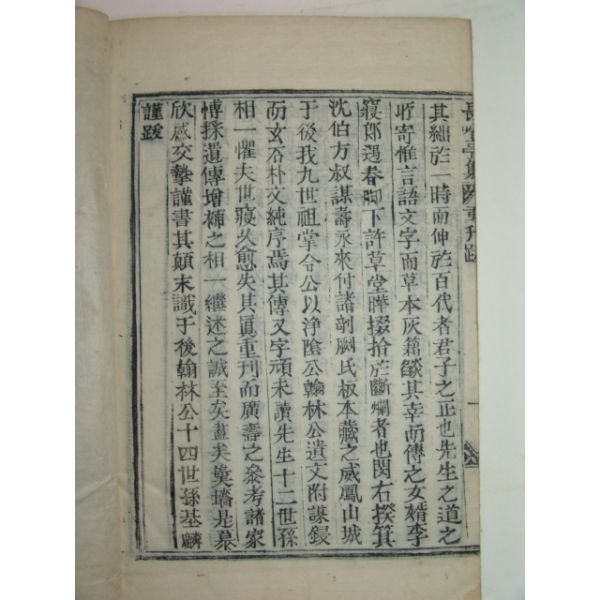 其絀於一時而伸於百代者君子之正也先生之道之
所寄惟言語文字而草本灰籍燄其幸而傳之女婿李
寢郎遇春脚下許草堂曄掇拾於斷爛者也関右揆箕
沈伯方叔謀壽永來付諸剞劂氏板本藏之威鳳山城
于後我九世祖掌令公以浄陰公翰林公遺文附謀鋟
而玄石朴文純序焉其傳又字頑未讀先生十二世孫
相一懼夫世寢久愈失其眞重刊而廣壽之叅考諸家
博採遺傳增補之相一繼述之誠至矣盡矣奠墻是慕
欣感交摯謹書其顛末識于後翰林公十四世孫基麟
謹跋